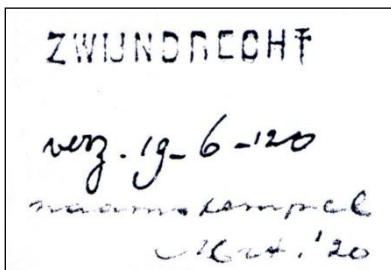 ZWIJNDRECHT
verz. 19-6-'20
naamstempel
'20